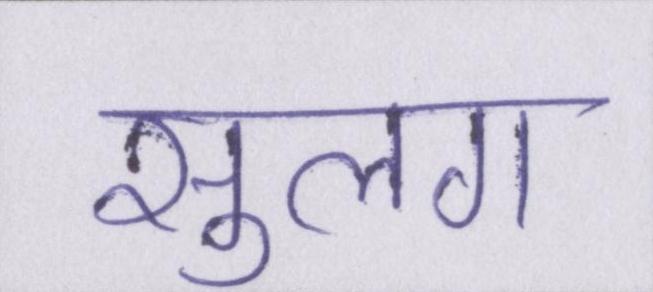 सुलग